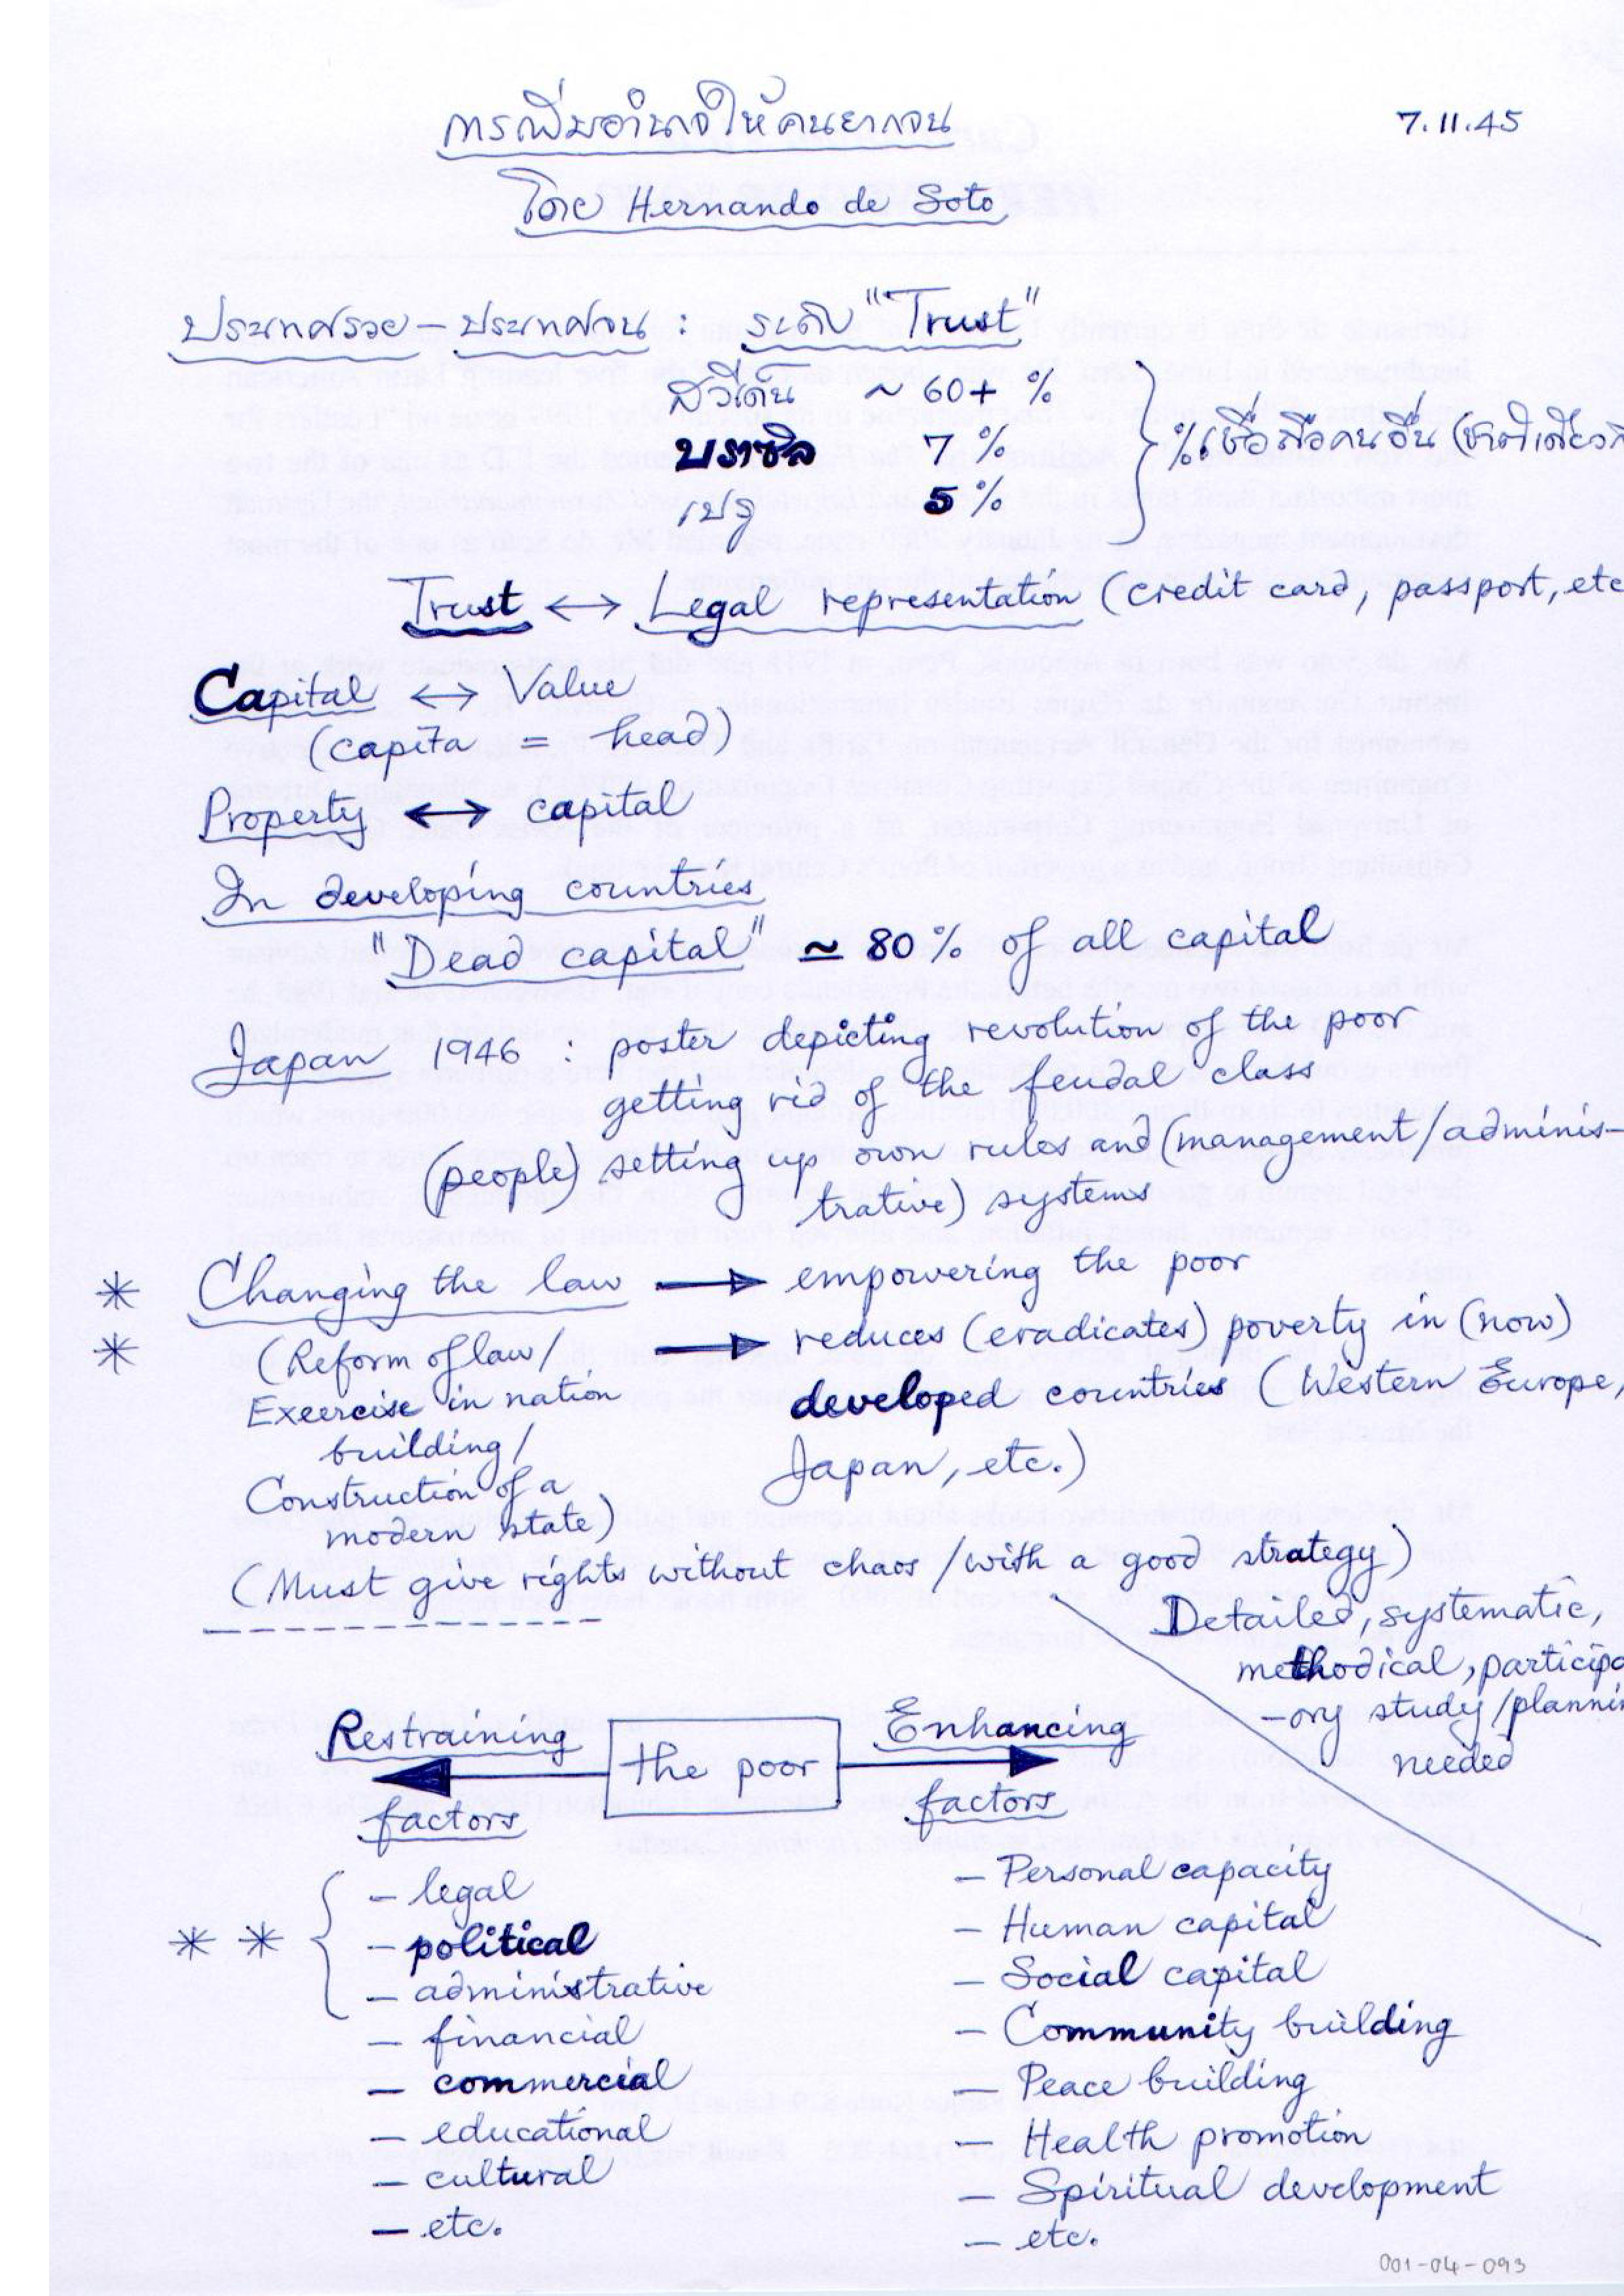 การเพิ่มอำนาจให้คนยากจน
7.11.45
โดย Hernando de Soto
ประเทศรวย – ประเทศจน : ระดับ "Trust"
สวีเดน ~ 60+ %
บราซิล 7 %
เปรู 5 %
% เชื่อถือคนอื่น (ชาติเดียวกั
Trust ↔ Legal representation (credit card, passport, etc
Capital ↔ Value
(capita = head)
Property ↔ capital
In developing countries
"Dead capital" ≃ 80% of all capital
Japan 1946 : poster depicting revolution of the poor
getting rid of the feudal class
(people) setting up own rules and (management/adminis-
trative) systems
* Changing the law → empowering the poor
* (Reform of law/ → reduces (eradicates) poverty in (now)
Exeercise in nation developed countries (Western Europe,
building/ Japan, etc.)
Construction of a
modern state)
(Must give rights without chaos /with a good strategy)
Detailed, systematic,
methodical, participa
-ory study/plannin
needed
Restraining the poor Enhancing
factors factors
* * { – legal
– political
– administrative
– financial
– commercial
– educational
– cultural
– etc.
– Personal capacity
– Human capital
– Social capital
– Community building
– Peace building
– Health promotion
– Spiritual development
– etc.
001-04-093